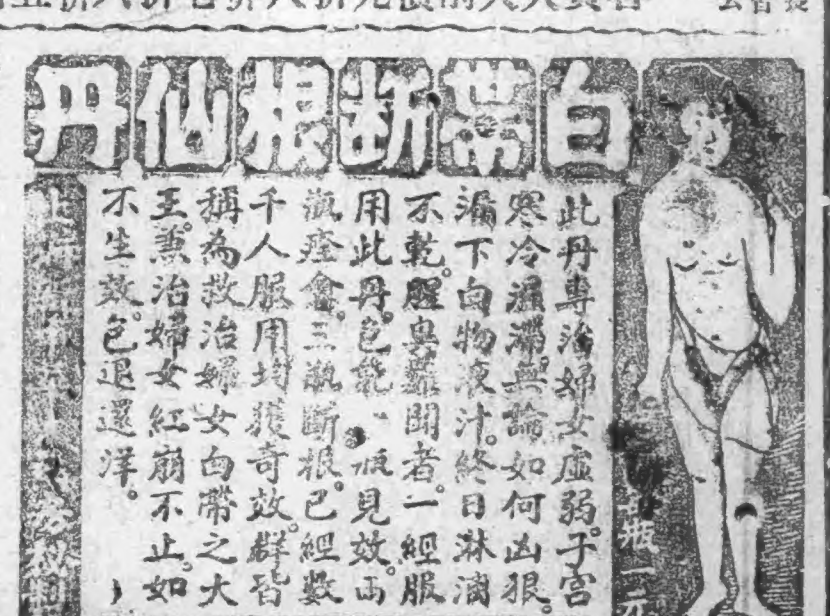 白帶斷根仙丹
此丹專治婦女虛弱。子宮
寒冷濕滯。無論如何凶狠。
漏下白物液汁。終日淋漓
不乾。腥臭難聞者。一經服
用此丹。包能一瓶見效。兩
瓶痊愈。三瓶斷根。已經數
千人服用均獲奇效。群皆
稱為救治婦女白帶之大
王。兼治婦女紅崩不止。如
不生效。包退還洋。